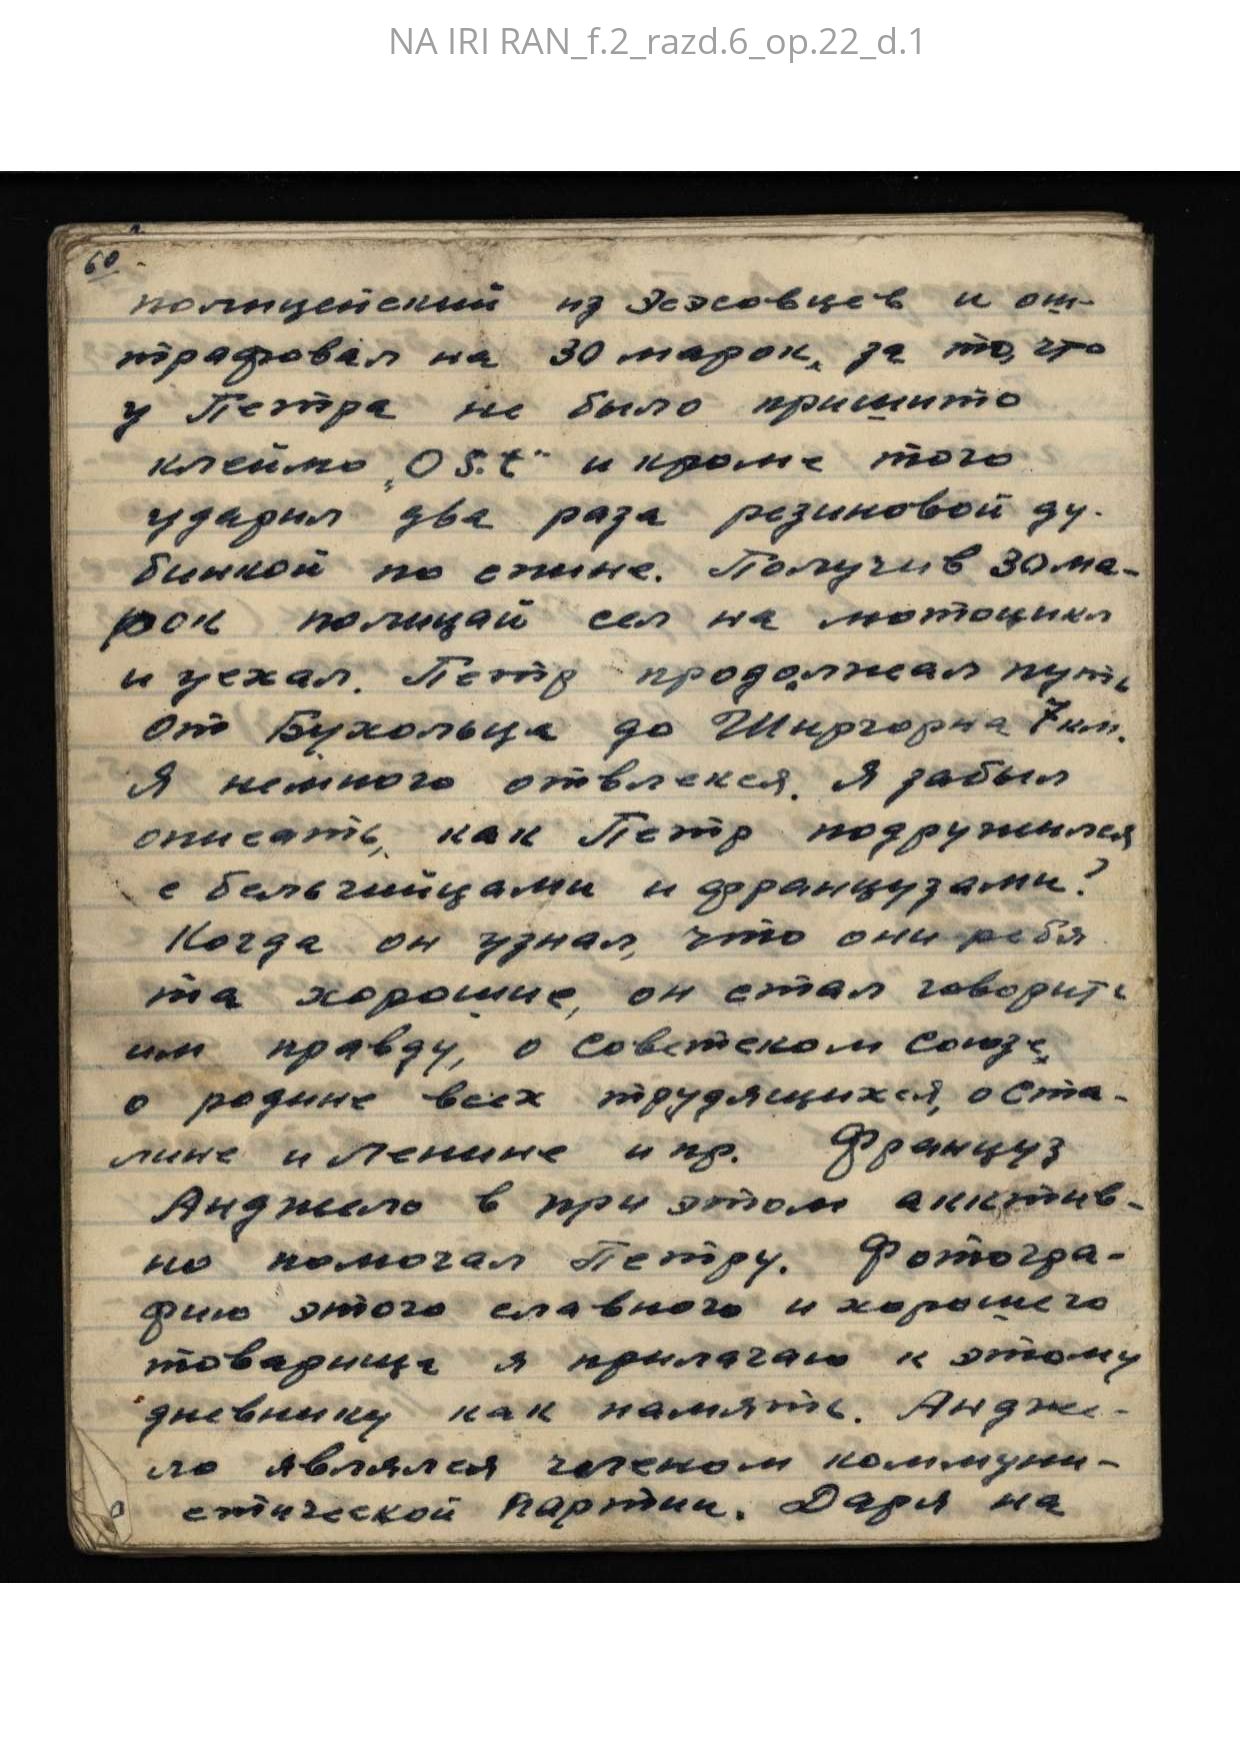 NA IRI RAN_f.2_razd.6_op.22_d.1
60
полицейский из Эсэсовцев и ош-
трафовал на 30 марок, за то, что
у Петра не было пришито
клеймо „OS.t“ и кроме того
ударил два раза резиновой ду-
бинкой по спине. Получив 30 ма-
рок полицай сел на мотоцикл
и уехал. Петр продолжал путь
от Бухольца до Ширгорна 7 км.
Я немного отвлекся. Я забыл
описать, как Петр подружился
с бельгийцами и французами?
Когда он узнал, что они ребя
та хорошие, он стал говорить
им правду, о Советском Союзе,
о родине всех трудящихся, о Ста-
лине и Ленине и пр. Француз
Анджело в при этом аккктив-
но помогал Петру. Фотогра-
фию этого славного и хорошего
товарища я прилагаю к этому
дневнику как память. Андже-
ло являлся членом коммуни-
стической Партии. Даря на